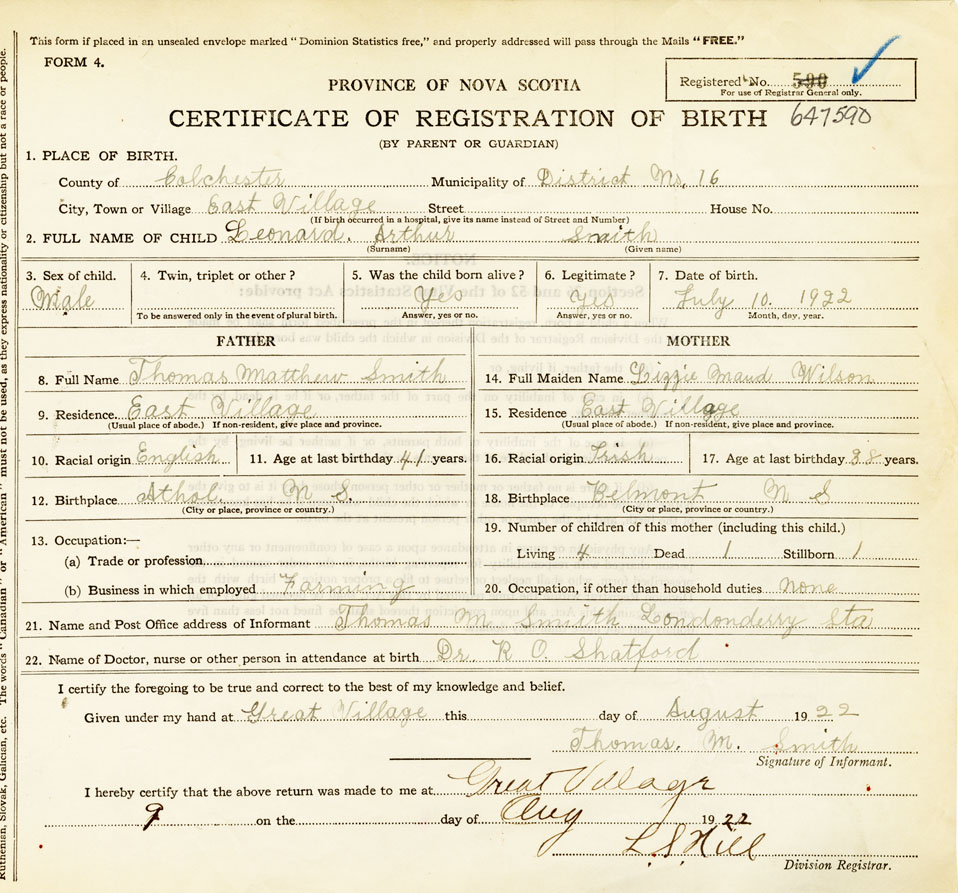 This form if placed in an unsealed envelope marked "Dominion Statistics free," and properly addressed will pass through the Mails "FREE."
FORM 4.
Registered No. 590
For use of Registrar General only.
PROVINCE OF NOVA SCOTIA
CERTIFICATE OF REGISTRATION OF BIRTH 647590
(BY PARENT OR GUARDIAN)
1. PLACE OF BIRTH.
County of Colchester Municipality of District No. 16
City, Town or Village East Village Street House No.
(If birth occurred in a hospital, give its name instead of Street and Number)
2. FULL NAME OF CHILD Leonard. Arthur Smith
(Surname) (Given name)
3. Sex of child. 4. Twin, triplet or other? 5. Was the child born alive? 6. Legitimate? 7. Date of birth.
Male Yes Yes July 10. 1922
To be answered only in the event of plural birth. Answer, yes or no. Answer, yes or no. Month, day, year.
FATHER
8. Full Name Thomas Matthew Smith
9. Residence East Village
(Usual place of abode.) If non-resident, give place and province.
10. Racial origin English 11. Age at last birthday 41 years.
12. Birthplace Athol. N S.
(City or place, province or country.)
13. Occupation:—
(a) Trade or profession
(b) Business in which employed Farming
MOTHER
14. Full Maiden Name Lizzie Maud Wilson
15. Residence East Village
(Usual place of abode.) If non-resident, give place and province.
16. Racial origin Irish 17. Age at last birthday 38 years.
18. Birthplace Belmont N S
(City or place, province or country.)
19. Number of children of this mother (including this child.)
Living 4 Dead 1 Stillborn 1
20. Occupation, if other than household duties none
21. Name and Post Office address of Informant Thomas M. Smith Londonderry Sta
22. Name of Doctor, nurse or other person in attendance at birth Dr. R O. Shatford
I certify the foregoing to be true and correct to the best of my knowledge and belief.
Given under my hand at Great Village this day of August 1922
Thomas. M. Smith
Signature of Informant.
I hereby certify that the above return was made to me at Great Village
9 on the day of Aug 1922
L. S. Hill
Division Registrar.
Ruthenian, Slovak, Galician, etc. The words "Canadian" or "American" must not be used, as they express nationality or citizenship but not a race or people.